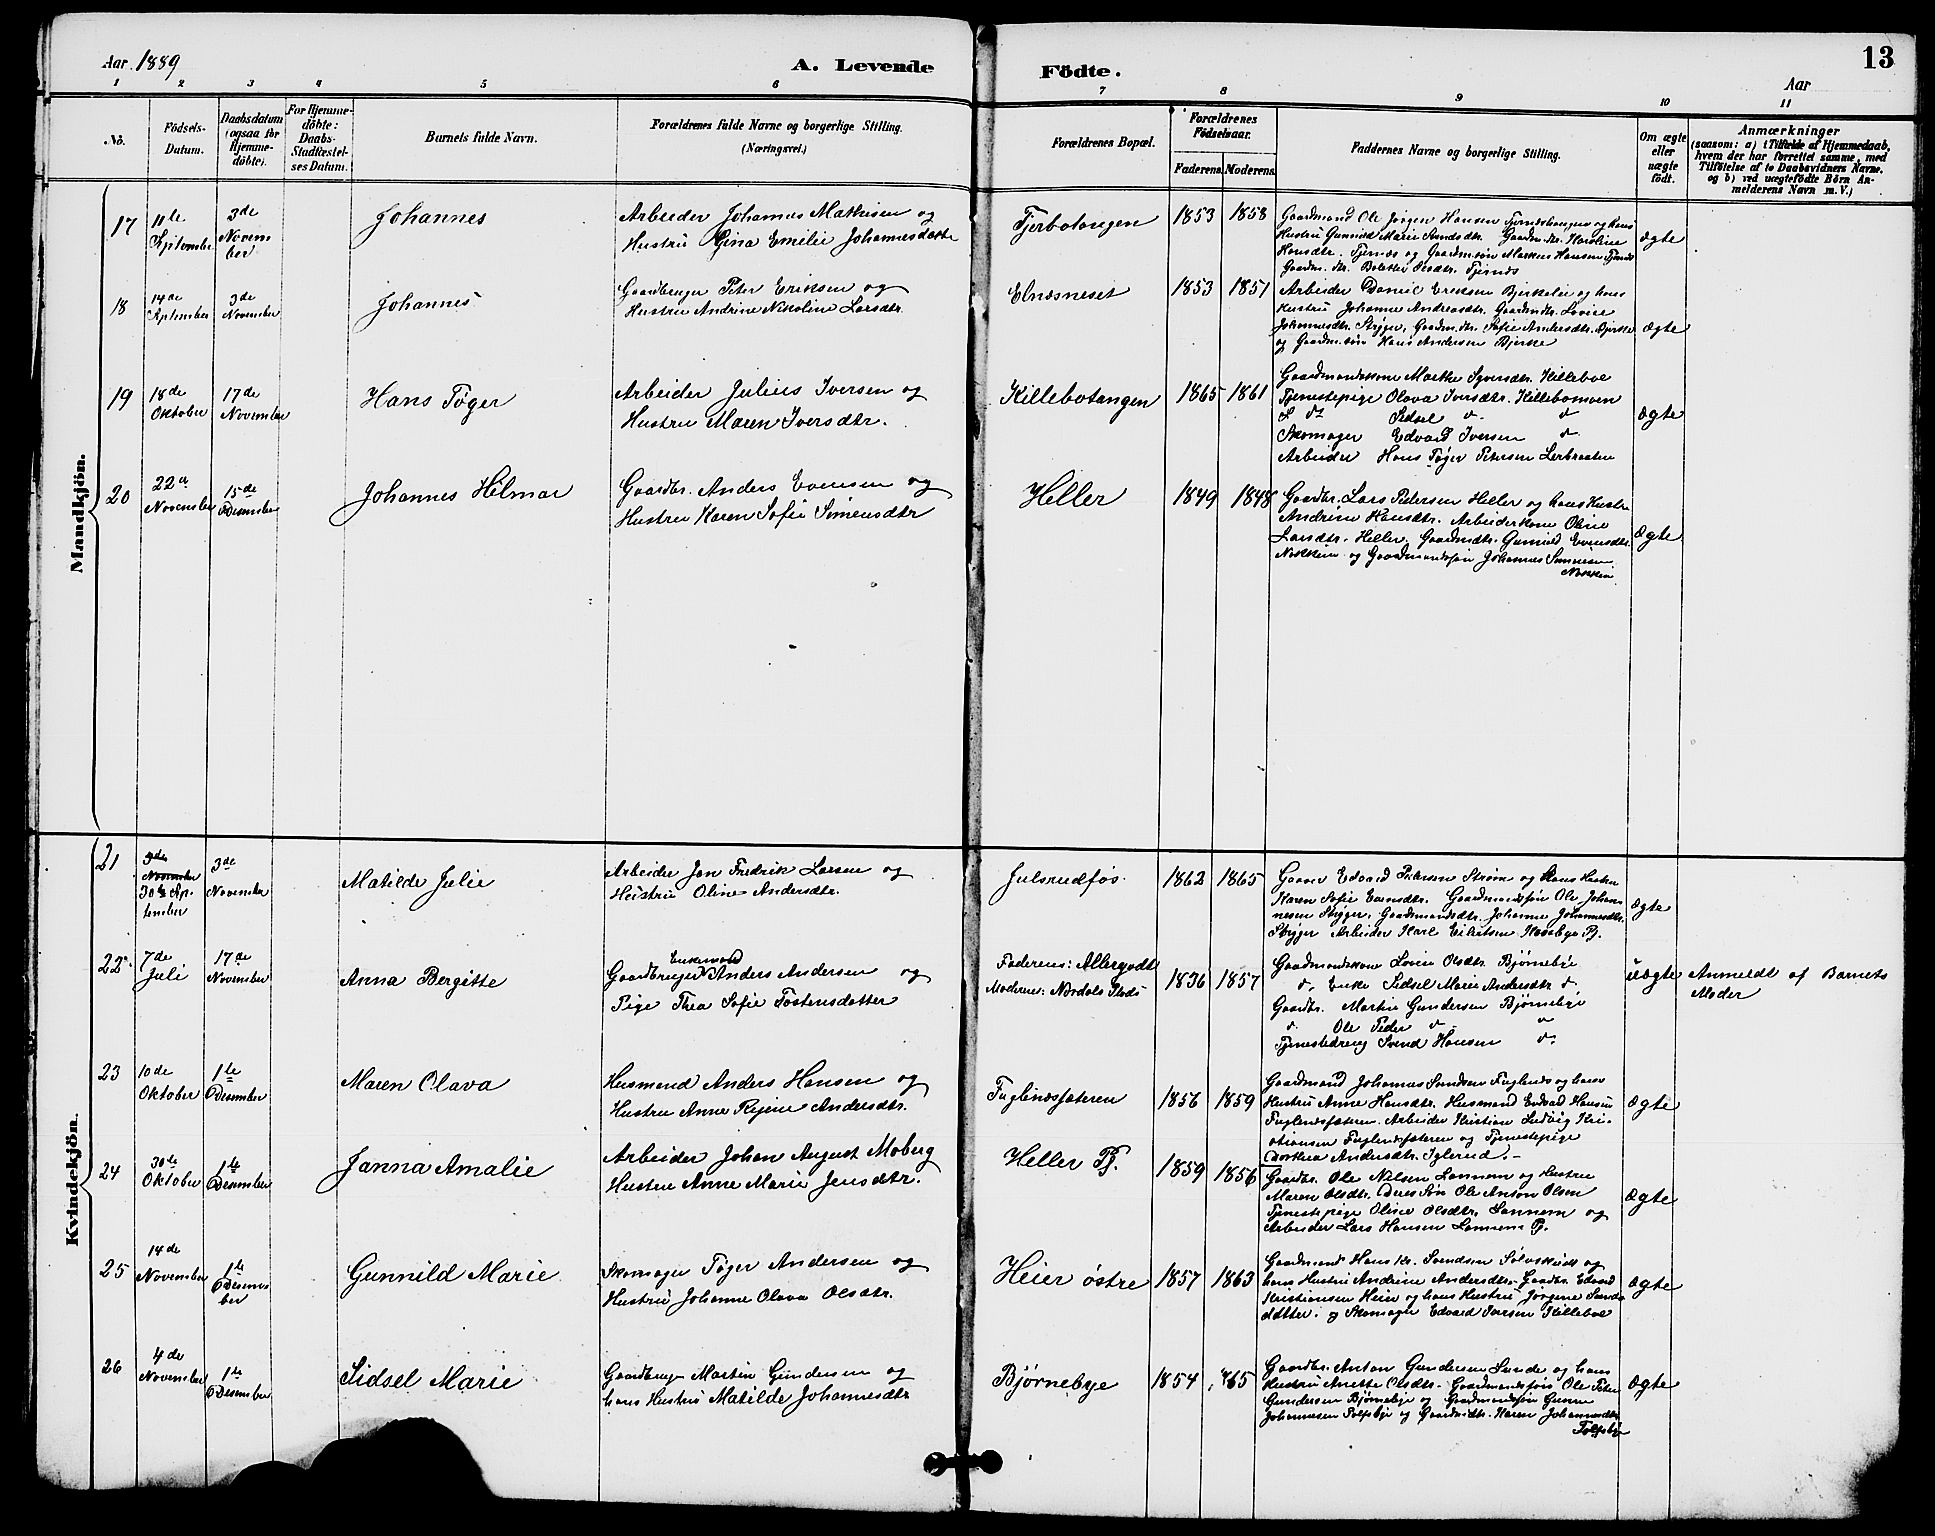 Aar. 1889
A. Levende
Födte.
Aar
13
1 2 3 4 5 6 7 8 9 10 11
No.
Födsels-
Datum.
Daabsdatum
(ogsaa for
Hjemme-
döbte).
For Hjemme-
döbte:
Daabs-
Stadfæstel-
ses Datum.
Barnets fulde Navn.
Forældrenes fulde Navne og borgerlige Stilling.
(Næringsvei.)
Forældrenes Bopæl.
Forældrenes
Födselsaar.
Faderens. Moderens.
Faddernes Navne og borgerlige Stilling.
Om ægte
eller
uægte
födt.
Anmærkninger
(saasom: a) i Tilfælde af Hjemmedaab,
hvem der har forrettet samme, med
Tilföielse af to Daabsvidners Navne.
og b) ved uægtefödte Börn An-
melderens Navn m. V.)
Mandkjön.
17
11te
September
3de
Novem
ber
Johannes
Arbeider Johannes Mathisen og
Hustru Gina Emilie Johannesdatter
Tjerbotangen
1853 1858
Gaardmand Ole Jørgen Hansen og hans
Hustru Gunnild Marie Gaardm. dtr. Karoline
Hansdtr. Tjernæs og Gaardm. søn Markus Hansen Tjernæs
Gaardm. dtr. Tjernæs
ægte
18
14de
September
3de
November
Johannes
Gaardbruger Peter Eriksen og
Hustru Andrine Nikoline Larsdtr.
Elnæsneset
1853 1851
Arbeider Daniel Eriksen Bjerkelie og hans
Hustru Johanne Andersdtr. Gaardmdtr. Lovise
Johannesdtr. Stryger, Gaardm. dtr. Sofie Andersdtr. Bjerke
og Gaardm. søn Hans Andersen Bjerke
ægte
19
18de
Oktober
17de
November
Hans Tøger
Arbeider Julius Iversen og
Hustru Maren Iversdtr.
Killebotangen
1865 1861
Gaardmandskone Marthe Syversdtr. Killeboe
Tjenestepige Olava Iversdtr. Killebomoen
Sidsel
Skomager Edvard Iversen
Arbeider Hans Tøger Petersen Lerbraaten
ægte
20
22de
November
15de
Desember
Johannes Hilmar
Gaardbr. Anders Evensen og
Hustru Karen Sofie Simensdtr
Heller
1849 1848
Gaardbr. Lars Pedersen Heller og hans Hustru
Andrine Hansdtr. Arbeiderkone Oline
Larsdtr. Heller, Gaardmdtr. Gunild Evensdtr.
og Gaardmandssøn Johannes Simensen
ægte
Kvindekjön.
21
3de
November
30te Sep-
tember
3de
November
Matilde Julie
Arbeider Jon Fredrik Larsen og
Hustru Oline Andersdtr.
Julsrudfos.
1862 1865
Edvard Pedersen Strøm og Hans Hustru
Karen Sofie Evensdtr. Gaardmandssøn Ole Johan-
nesen Stryger, Gaardmandsdtr. Johanne Johannesdtr.
Stryger Arbeider Karl Eilertsen
ægte
22
7de
Juli
17de
November
Anna Bergitte
Enkemand
Gaardbruger Anders Andersen og
Pige Thea Sofie Tostensdatter
Faderens: Allergodt
Moderens: Nordals Plads
1836 1857
Gaardmandskone Lovise Olsdtr. Bjørnebye
Enke Sidsel Marie Andersdtr
Gaardbr. Martin Gundersen Bjørnebye
Ole Peder
Tjenestedreng Svend Hansen
uægte
Anmeldt af Barnets
Moder
23
10de
Oktober
1te
Desember
Maren Olava
Husmand Anders Hansen og
Hustru Anne Rejine Andersdtr.
Fuglenæsjæteren
1856 1859
Gaardmand Johannes Fuglenæs og hans
Hustru Anne Hansdtr. Husmand Edvard Hansen
Arbeider Kristian Ludvig Kri-
stiansen og Tjenestepige
Dorthea Andersdtr. Iglerud.
ægte
24
30te
Oktober
1te
Desember
Janna Amalie
Arbeider Johan August Moberg
Hustru Anne Marie Jensdtr.
Heller Pl.
1859 1856
Gaardbr. Ole Nilsen Lannem og Hustru
Maren Olsdtr. Deres Søn Ole Anton Olsen
Tjenestepige Oline Olsdtr. Lannem og
Arbeider Lars Hansen Lannem Pl.
ægte
25
14de
November
1te
Desem-
ber
Gunnild Marie
Skomager Tøger Andersen og
Hustru Johanne Olava Olsdtr.
Heier østre
1857 1863
Gaardmand Hans Kr. Svendsen Sølvskudt og
hans Hustru Andrine Andersdtr. Gaardbr. Edvard
Kristiansen Heier og hans Hustru Jørgine
datter. og Skomager Edvard Iversen Killeboe
ægte
26
4de
November
1te
Desember
Sidsel Marie
Gaardbruger Martin Gundersen og
hans Hustru Matilde Johannesdtr
Bjørnebye
1854 65
Gaardbr. Anton Gundersen Sunde og hans
Hustru Anette Olsdtr. Gaardmandssøn Ole Peter
Gundersen Bjørnebye og Gaardmandssøn
Johannesen Tolfsbye og Gaardmdtr. Karen Johannesdtr
Tolfsbye
ægte